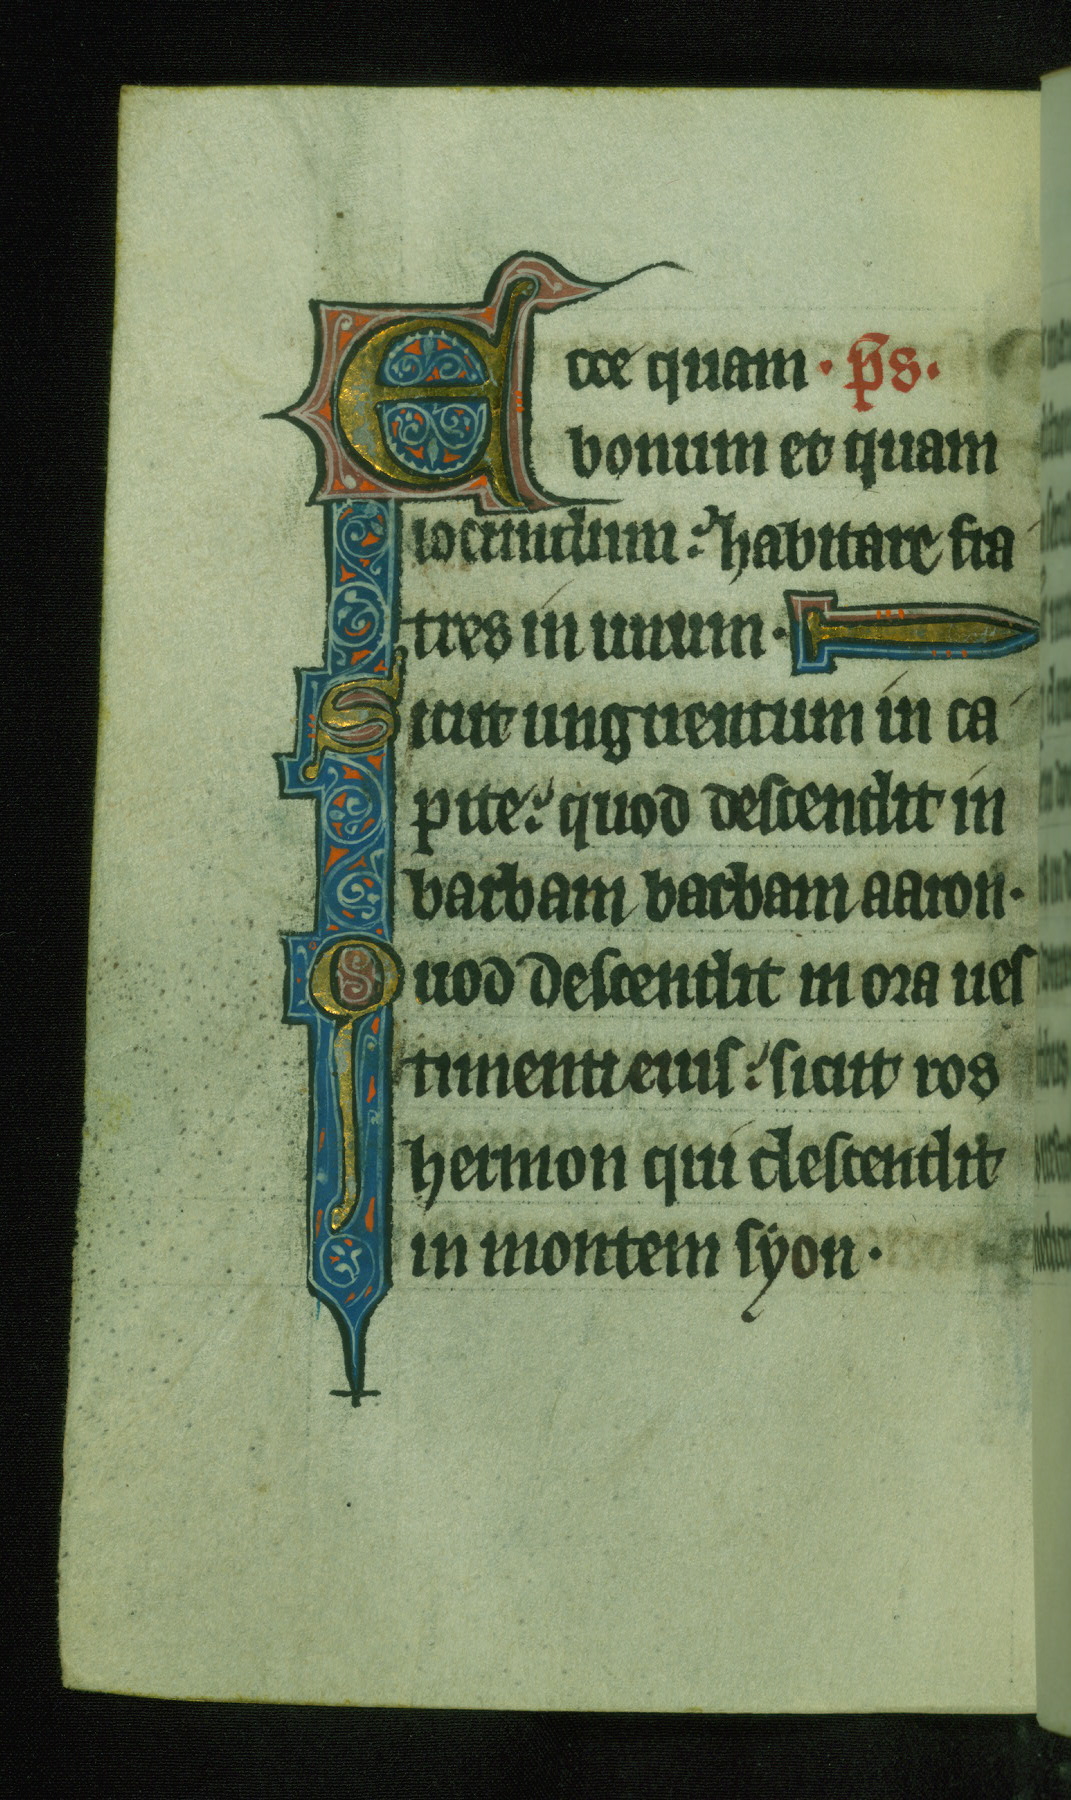 Ecce quam · p̄s ·
bonum et quam
iocundum : habitare fra
tres in unum ·
Sicut unguentum in ca
pite : quod descendit in
barbam barbam aaron ·
Quod descendit in ora ues
timenti eius : sicut ros
hermon qui descendit
in montem syon ·